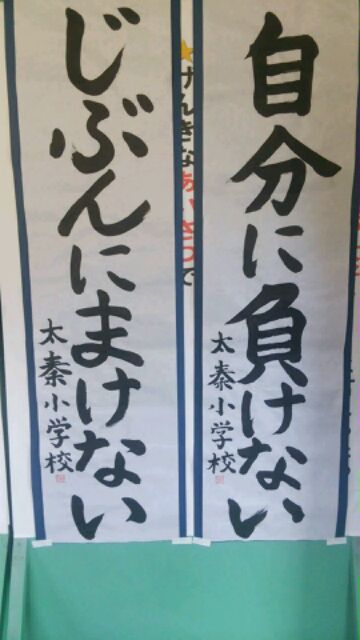 自分に負けない
太秦小学校
★げんきなあいさつで
じぶんにまけない
太秦小学校